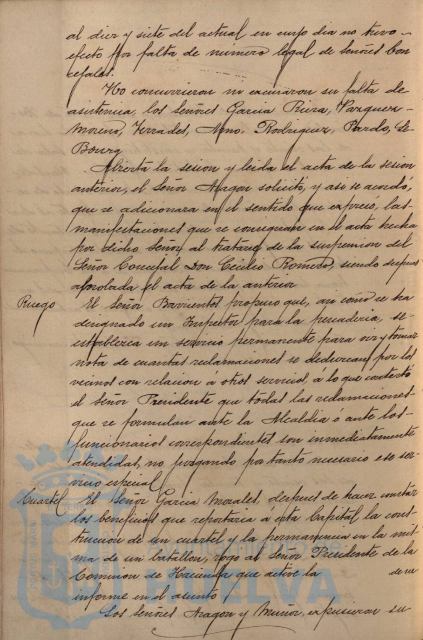 al diez y siete del actual en cuyo dia no tuvo
efecto por falta de número legal de Señores Con
cejales.
No concurrieron ni escusaron su falta de
asistencia, los Señores Garcia Riera, Vazquez
Moreno, Terrades, Rodriguez, Pardo, Le
Bourg
Abierta la sesion y leida el acta de la sesion
anterior, el Señor Aragon solicitó, y asi se acordó,
que se adicionara en el sentido que expresó, las
manifestaciones que se consignan en el acta hecha
por dicho Señor, al tratarse de la suspension del
Señor Concejal Don Cecilio Romero, siendo
aprobada el acta de la anterior
Ruego El Señor Barrientos propuso que, asi como se ha
designado un Inspector para la pescaderia, se
establezca un servicio permanente para oir y tomar
nota de cuantas reclamaciones se deduzcan por los
vecinos con relacion á otros servicios, á lo que contestó
el Señor Presidente que todas las reclamaciones
que se formulan ante la Alcaldia ó ante los
funcionarios correspondientes son inmediatamente
atendidas, no juzgando por tanto necesario ese ser
vicio especial
Cuartel El Señor Garcia Morales, despues de hacer constar
los beneficios que reportaria á esta Capital la cons
truccion de un cuartel y la permanencia en la mis
ma de un batallon, rogó al Señor Presidente de la
Comision de Hacienda que active la
informe en el asunto
Los Señores Aragon y Muñoz, expusieron su
HUELVA